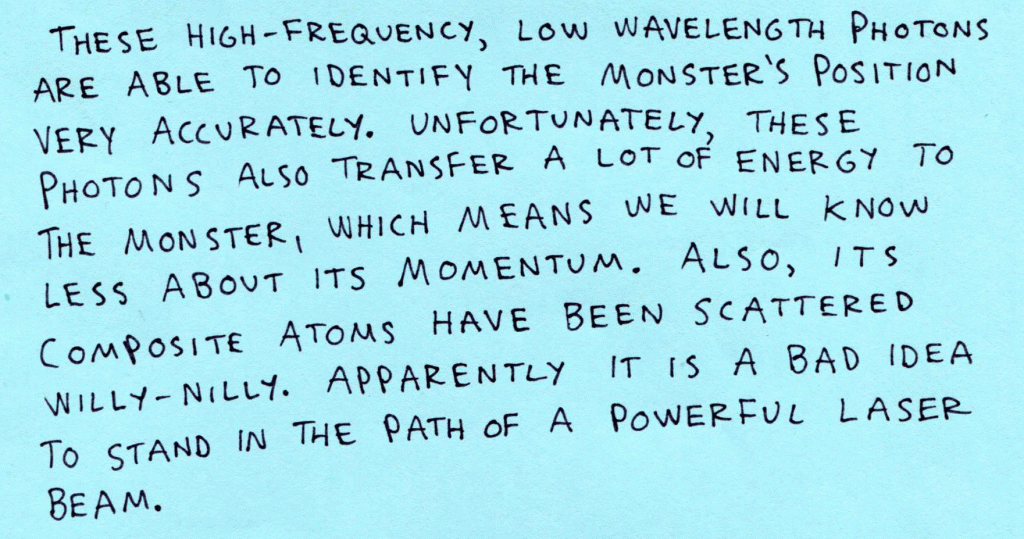 THESE HIGH-FREQUENCY, LOW WAVELENGTH PHOTONS
ARE ABLE TO IDENTIFY THE MONSTER'S POSITION
VERY ACCURATELY. UNFORTUNATELY, THESE
PHOTONS ALSO TRANSFER A LOT OF ENERGY TO
THE MONSTER, WHICH MEANS WE WILL KNOW
LESS ABOUT ITS MOMENTUM. ALSO, ITS
COMPOSITE ATOMS HAVE BEEN SCATTERED
WILLY-NILLY. APPARENTLY IT IS A BAD IDEA
TO STAND IN THE PATH OF A POWERFUL LASER
BEAM.